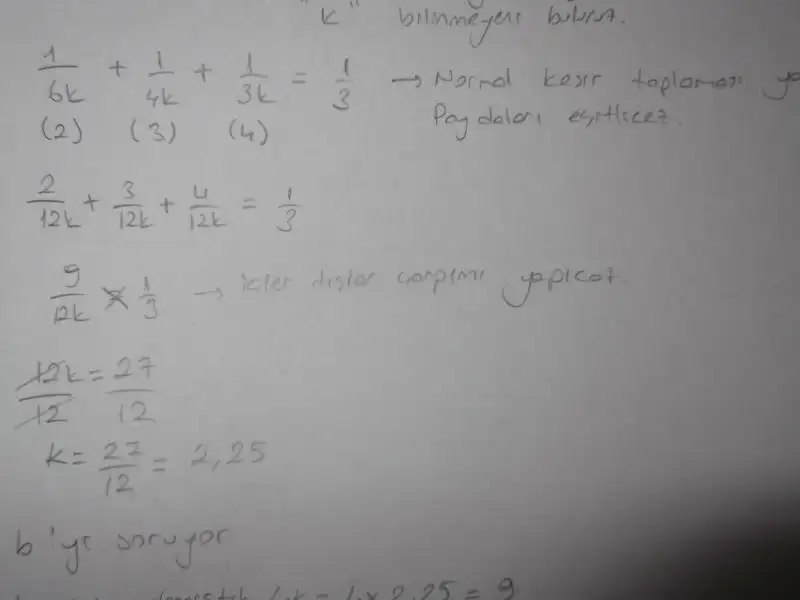 "k" bilinmeyeni buluruz.
1/6k + 1/4k + 1/3k = 1/3 → Normal kesir toplaması
(2) (3) (4) Paydaları eşitlicez.
2/12k + 3/12k + 4/12k = 1/3
9/12k × 1/3 → içler dışlar çarpımı yapıcaz.
12k/12 = 27/12
k = 27/12 = 2,25
b'yi soruyor
4.k = 4 x 2,25 = 9